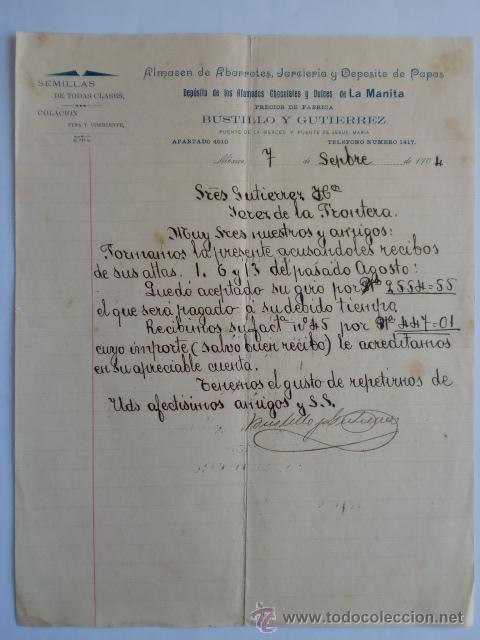 SEMILLAS
DE TODAS CLASES,
COLACION
FINA Y CORRIENTE,
Almacen de Abarrotes, Jarcieria y Deposito de Papas
Depósito de los Afamados Chocolates y Dulces de La Manita
PRECIOS DE FABRICA
BUSTILLO Y GUTIERREZ.
PUENTE DE LA MERCED Y PUENTE DE JESUS MARIA
APARTADO 4010 TELEFONO NUMERO 1417.
México, 7 de Sepbre de 1904
Sres Gutierrez Hos
Jerez de la Frontera.
Muy Sres nuestros y amigos:
Formamos la presente acusandoles recibos
de sus attas. 1. 6 y 13 del pasado Agosto:
Quedó aceptado su giro por 2554=55
el que será pagado á su debido tiempo
Recibimos su fact.ra nº 45 por 447=01
cuyo importe (salvo buen recibo) le acreditamos
en su apreciable cuenta.
Tenemos el gusto de repetirnos de
Uds afectisimos amigos y S.S.
Bustillo y Gutierrez
www.todocoleccion.net